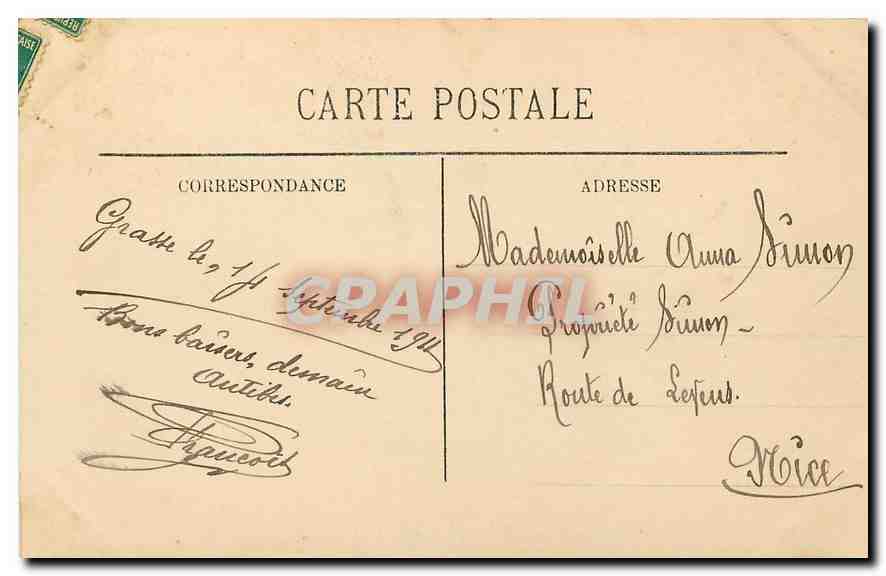 CARTE POSTALE
CORRESPONDANCE
Grasse le, 14 Septembre 1911
Bons baisers, demain
Antibes.
François
ADRESSE
Mademoiselle Anna Simon
Propriété Simon -
Route de Levens.
Nice
CPAPHIL